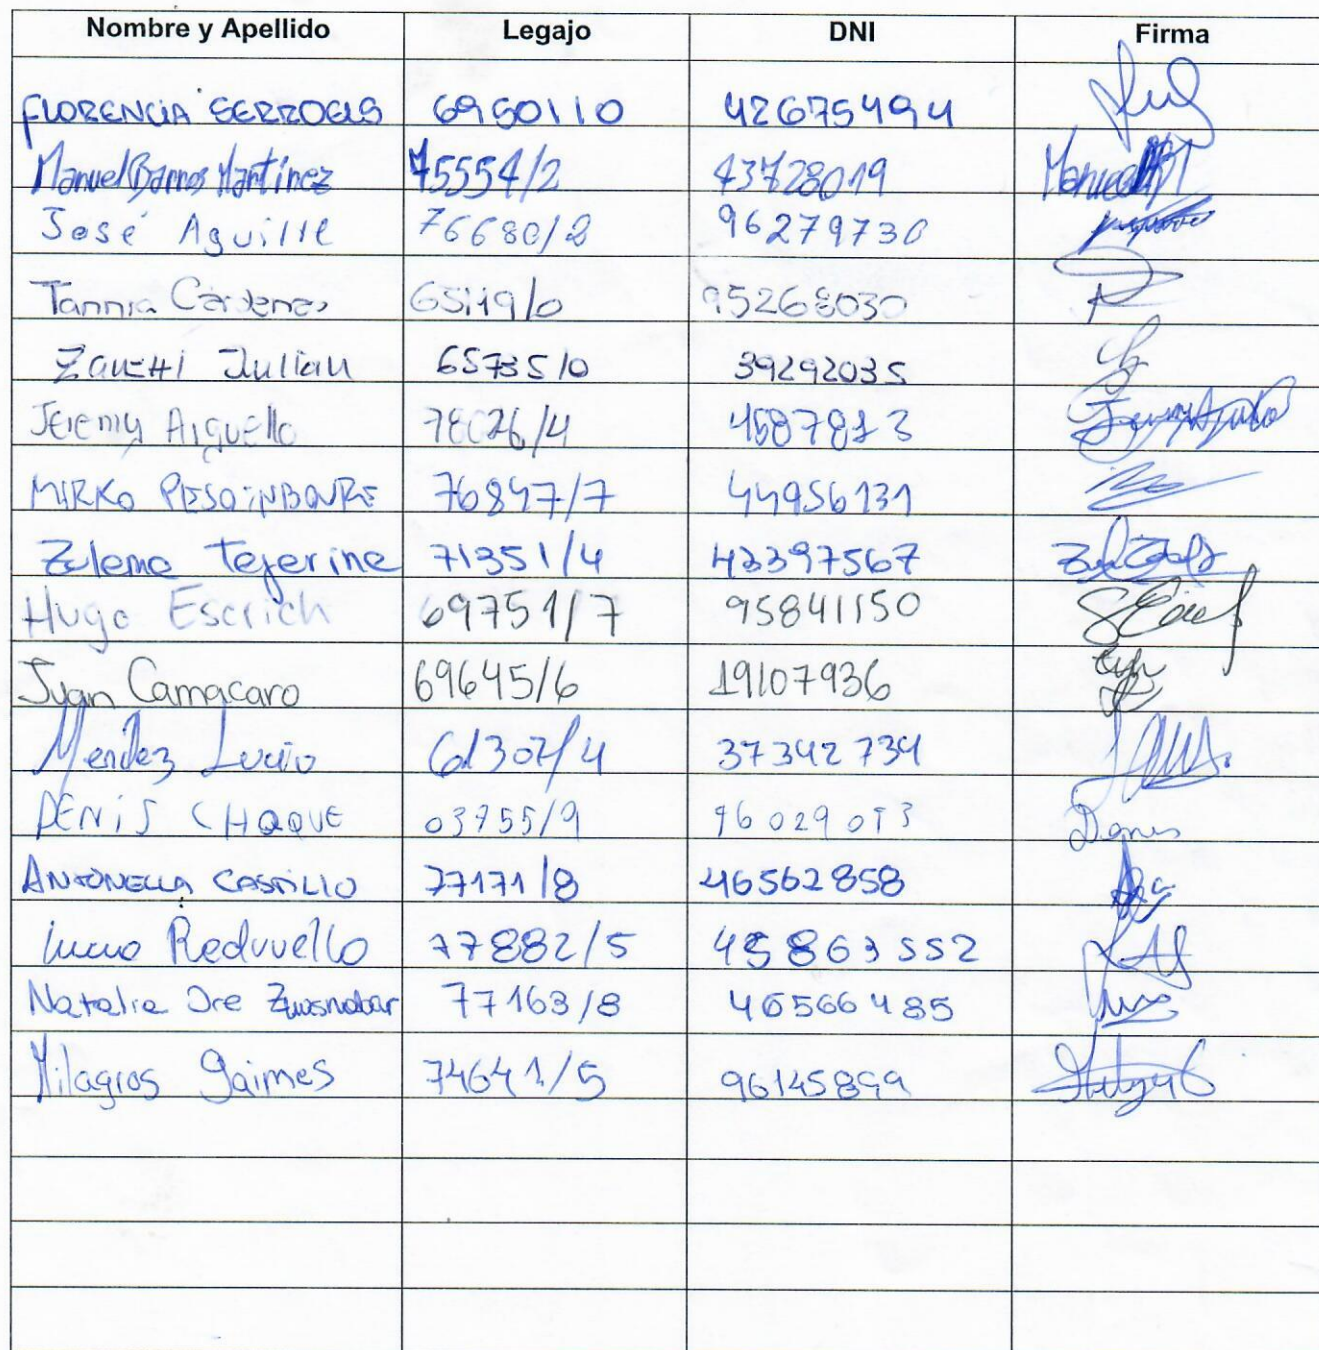 Nombre y Apellido Legajo DNI Firma
FLORENCIA 6950110 42675494
Manuel Barros Martínez 75554/2 43728019
José Aguille 76680/2 96279730
Tannia Cardenas 65119/0 95268030
Zanetti Julian 65735/0 39292035
Jeremy Arguello 78026/4
MIRKO 76847/7 44956131
Zulema Tejerine 71351/4 43397567
Hugo Escrich 69751/7 95841150
Juan Camacaro 69645/6 19107936
Mendez Lucio 61307/4 37342734
DENIS CHOQUE 03755/9 Denis
ANTONELLA CASTILLO 77171/8 46562858
Redvuello 77882/5 45863552
Natalia Ore 77163/8 46566485
Milagros Jaimes 74641/5 96145899